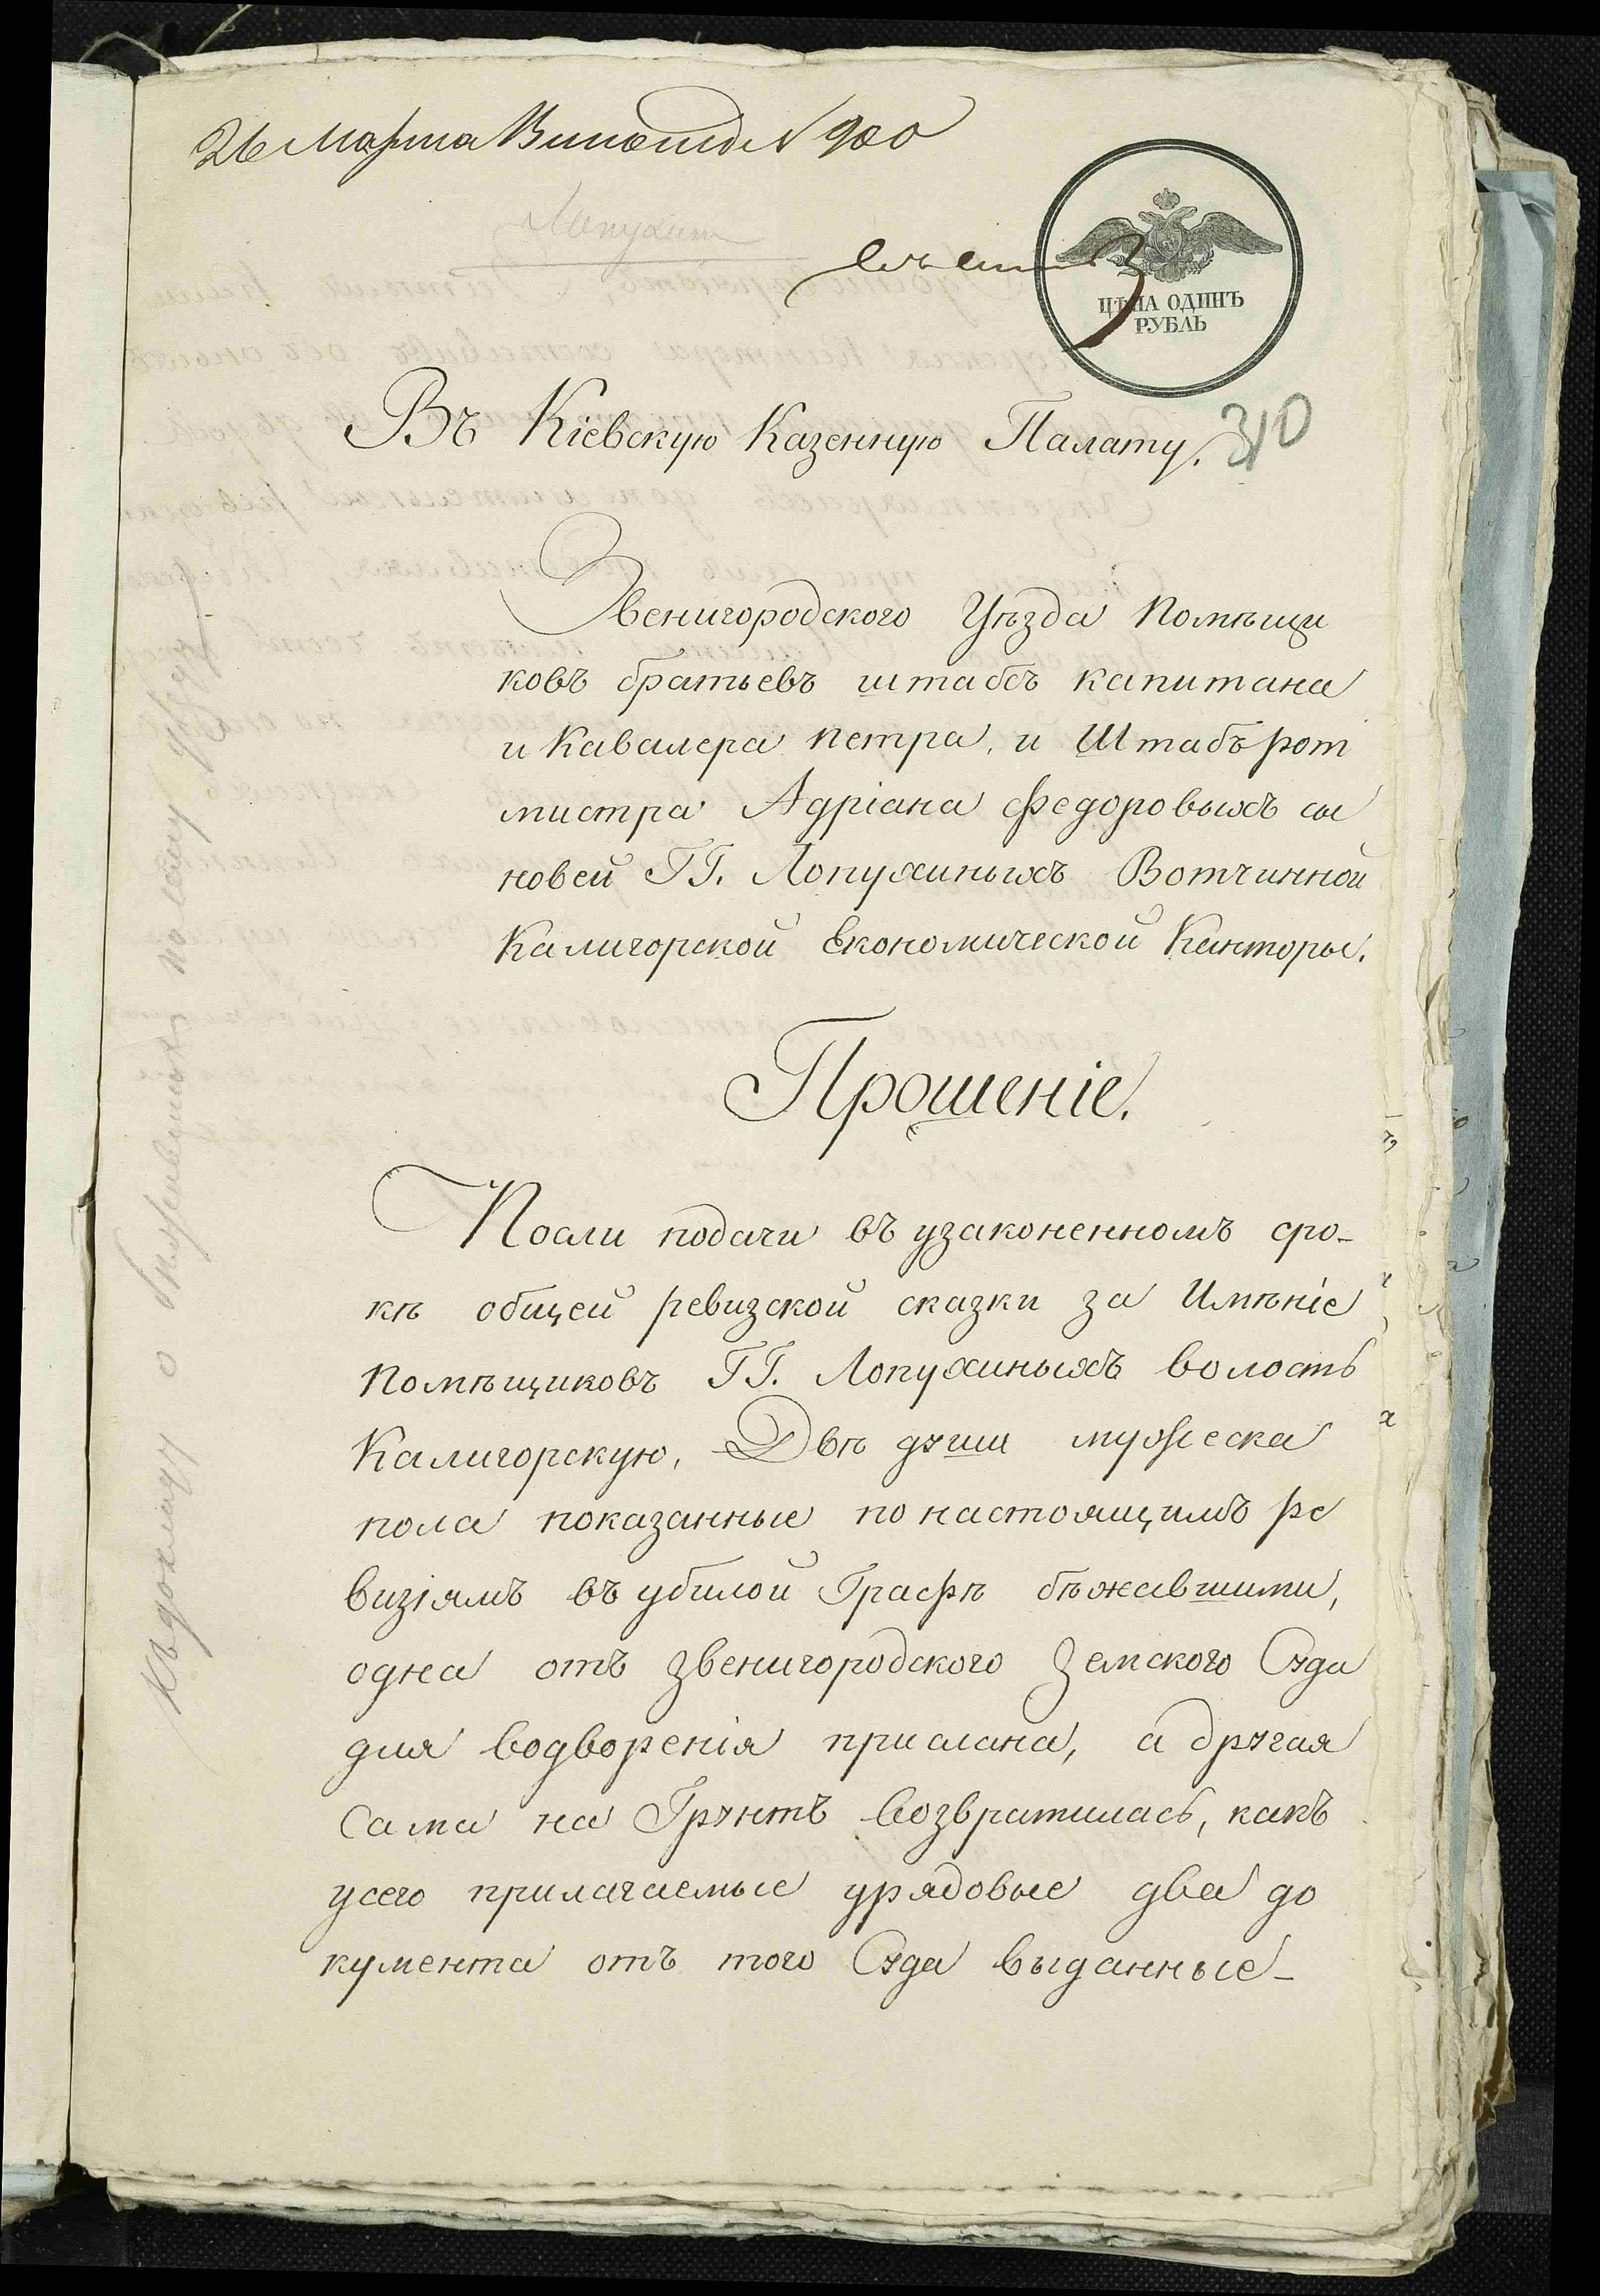 26 Марта № 900
Лопухин
ЦѢНА ОДИНЪ
РУБЛЬ
Въ Кіевскую Казенную Палату.
310
Звенигородского Уѣзда Помѣщи
ковъ братьевъ штабсъ капитана
и Кавалера петра, и Штабъ рот
мистра Адріана Федоровыхъ сы
новей ГГ. Лопухиныхъ Вотчинной
Калигорской Економической Канторы.
Прошеніе.
Посли подачи въ узаконенномъ сро-
кѣ общей ревизской сказки за Имѣніе
Помѣщиковъ ГГ. Лопухиныхъ волость
Калигорскую, Двѣ души мужеска
пола показанные по настоящимъ ре
визіямъ въ убилой Графѣ бѣжавшими,
одна отъ звенигородского Земского Суда
для водворенія прислана, а другая
Сама на Грунтъ возвратилась, какъ
усего прилагаемые урядовые два до
кумента отъ того Суда выданные-
Къ докладу о